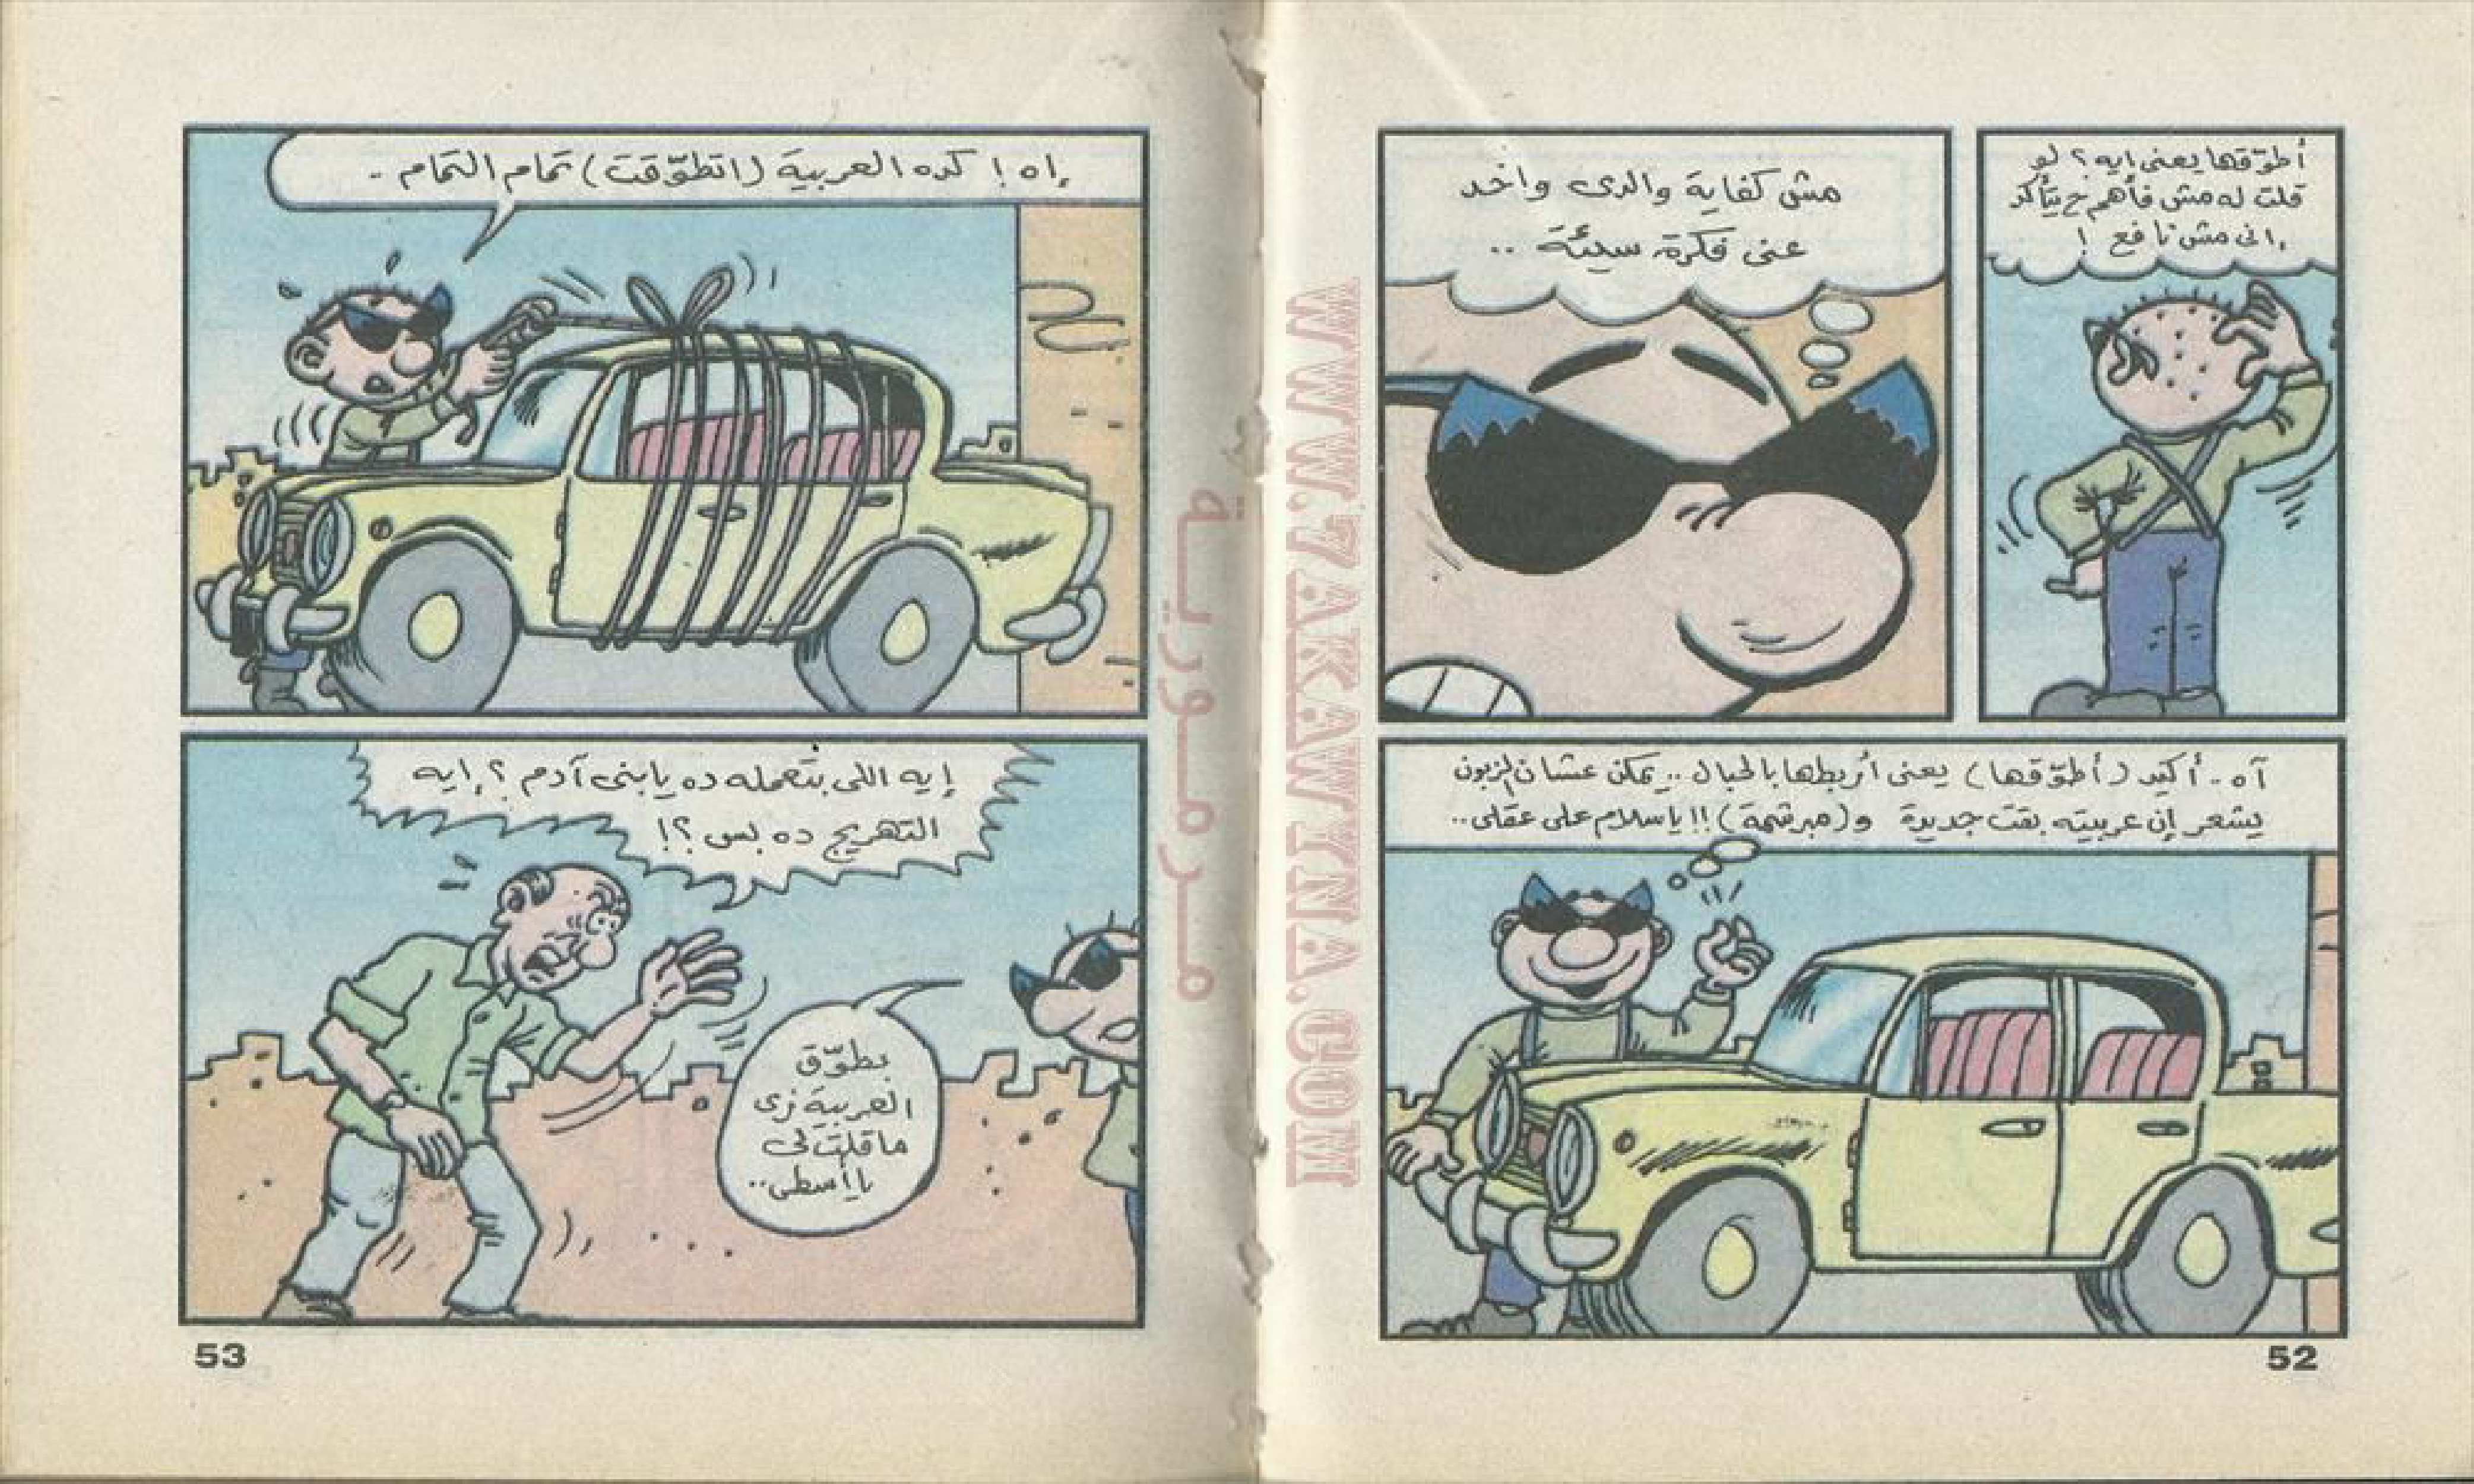 أطوّقها يعنى إيه؟ لو
قلت له مش فاهم ح يتأكد
إنى مش نافع!
مش كفاية والدى واخد
عنى فكرة سيئة..
آه.. أكيد (أطوّقها) يعنى أربطها بالحبال.. يمكن عشان الزبون
يشعر إن عربيته بقت جديدة و(مبرشمة)!! ياسلام على عقلى..
52
إه! كده العربية (اتطوّقت) تمام التمام.
إيه اللى بتعمله ده يابنى آدم؟ إيه
التهريج ده بس؟!
بطوّق
العربية زى
ما قلت لى
يا أسطى..
53
مرمورية
WWW.7AKAWYNA.COM